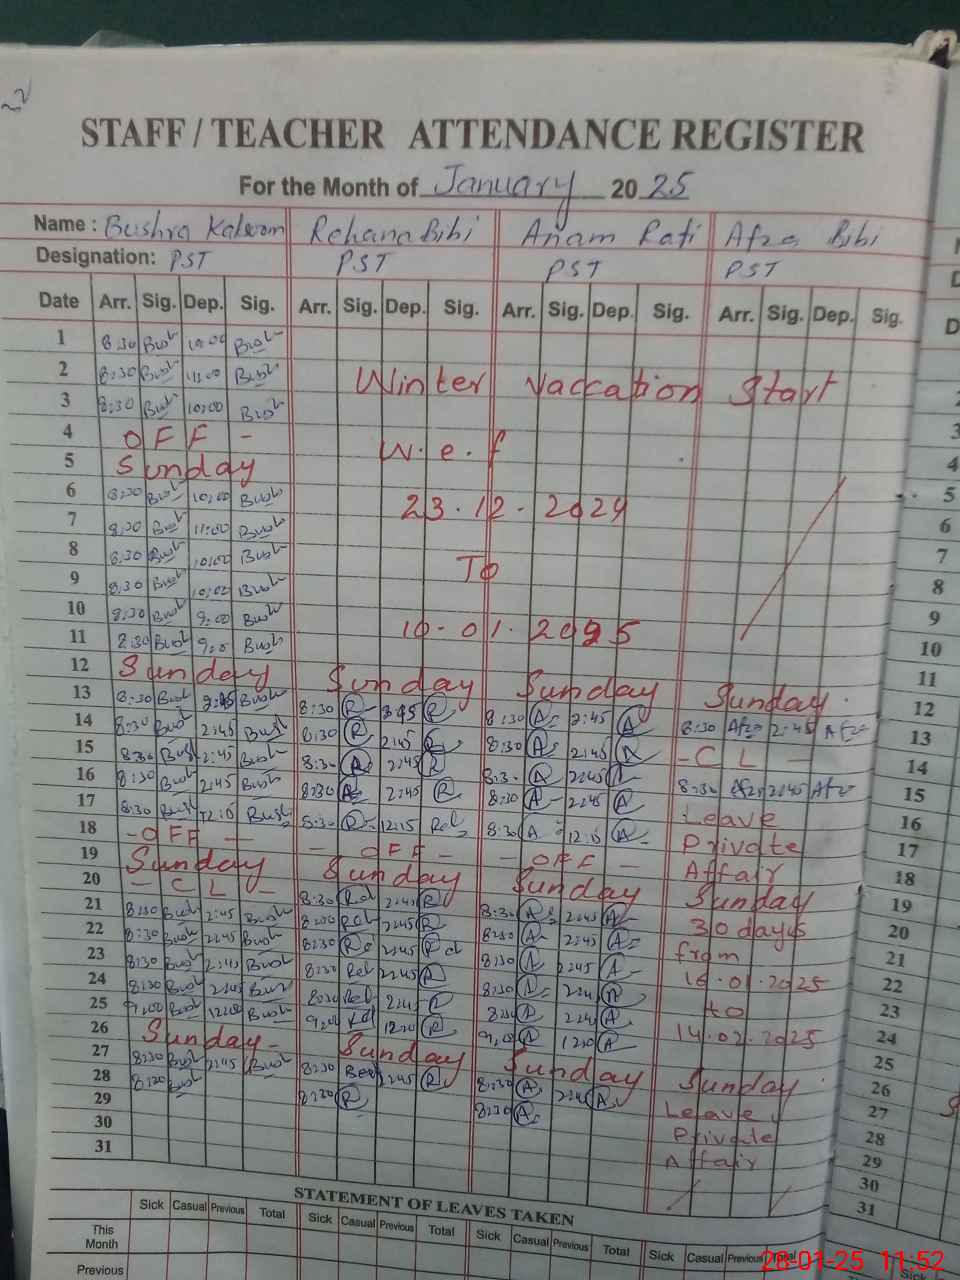 STAFF / TEACHER ATTENDANCE REGISTER
For the Month of January 2025
Name : Bushra Kalsoom Rehana Bibi Anam Rafi Afza Bibi
Designation: PST PST PST PST
Date Arr. Sig. Dep. Sig. Arr. Sig. Dep. Sig. Arr. Sig. Dep. Sig. Arr. Sig. Dep. Sig.
1 8:30 Bush 10:00 Bush
2 8:30 Bush 11:00 Bush Winter Vaccation Start
3 8:30 Bush 10:00 Bush
4 OFF - W.e.f
5 Sunday
6 8:30 Bush 10:00 Bush 23.12.2024
7 8:30 Bush 11:00 Bush
8 8:30 Bush 10:00 Bush To
9 8:30 Bush 10:00 Bush
10 8:30 Bush 9:00 Bush 10.01.2025
11 8:30 Bush 9:00 Bush
12 Sunday Sunday Sunday Sunday
13 8:30 Bush 2:45 Bush 8:30 R R 8:30 A 2:45 A 8:30 Afza 2:45 Afza
14 8:30 Bush 2:45 Bush 8:30 R 2:45 R 8:30 A 2:45 A - C L -
15 8:30 Bush 2:45 Bush 8:30 2:45 R 8:30 A 2:45 A 8:30 Afza 2:45 Afza
16 8:30 Bush 2:45 Bush 8:30 2:45 R 8:30 A 2:45 A Leave
17 8:30 Bush 12:15 Bush 8:30 R 12:15 Reh 8:30 A 12:15 A Private
18 - OFF - - OFF - - OFF - Affair
19 Sunday Sunday Sunday Sunday
20 - C L - 8:30 Reh 2:45 R 8:30 A 2:45 A 30 days
21 8:30 Bush 2:45 Bush 8:30 Reh 2:45 R 8:30 A 2:45 A from
22 8:30 Bush 2:45 Bush 8:30 2:45 8:30 A 2:45 A 16.01.2025
23 8:30 Bush 2:45 Bush 8:30 Reh 2:45 R 8:30 A 2:45 A to
24 8:30 Bush 2:45 Bush 8:30 Reh 8:30 A A 14.02.2025
25 9:00 Bush 12:00 Bush 9:00 R 9:00 A A
26 Sunday - Sunday Sunday Sunday
27 8:30 Bush 2:45 Bush 8:30 2:45 R 8:30 A 2:45 A Leave
28 8:30 Bush 8:30 R 8:30 A Private
29 Affair
30
31
STATEMENT OF LEAVES TAKEN
Sick Casual Previous Total Sick Casual Previous Total Sick Casual Previous Total Sick Casual Previous Total
This Month
Previous
28-01-25 11:52
3
4
5
6
7
8
9
10
11
12
13
14
15
16
17
18
19
20
21
22
23
24
25
26
27
28
29
30
31
Sick